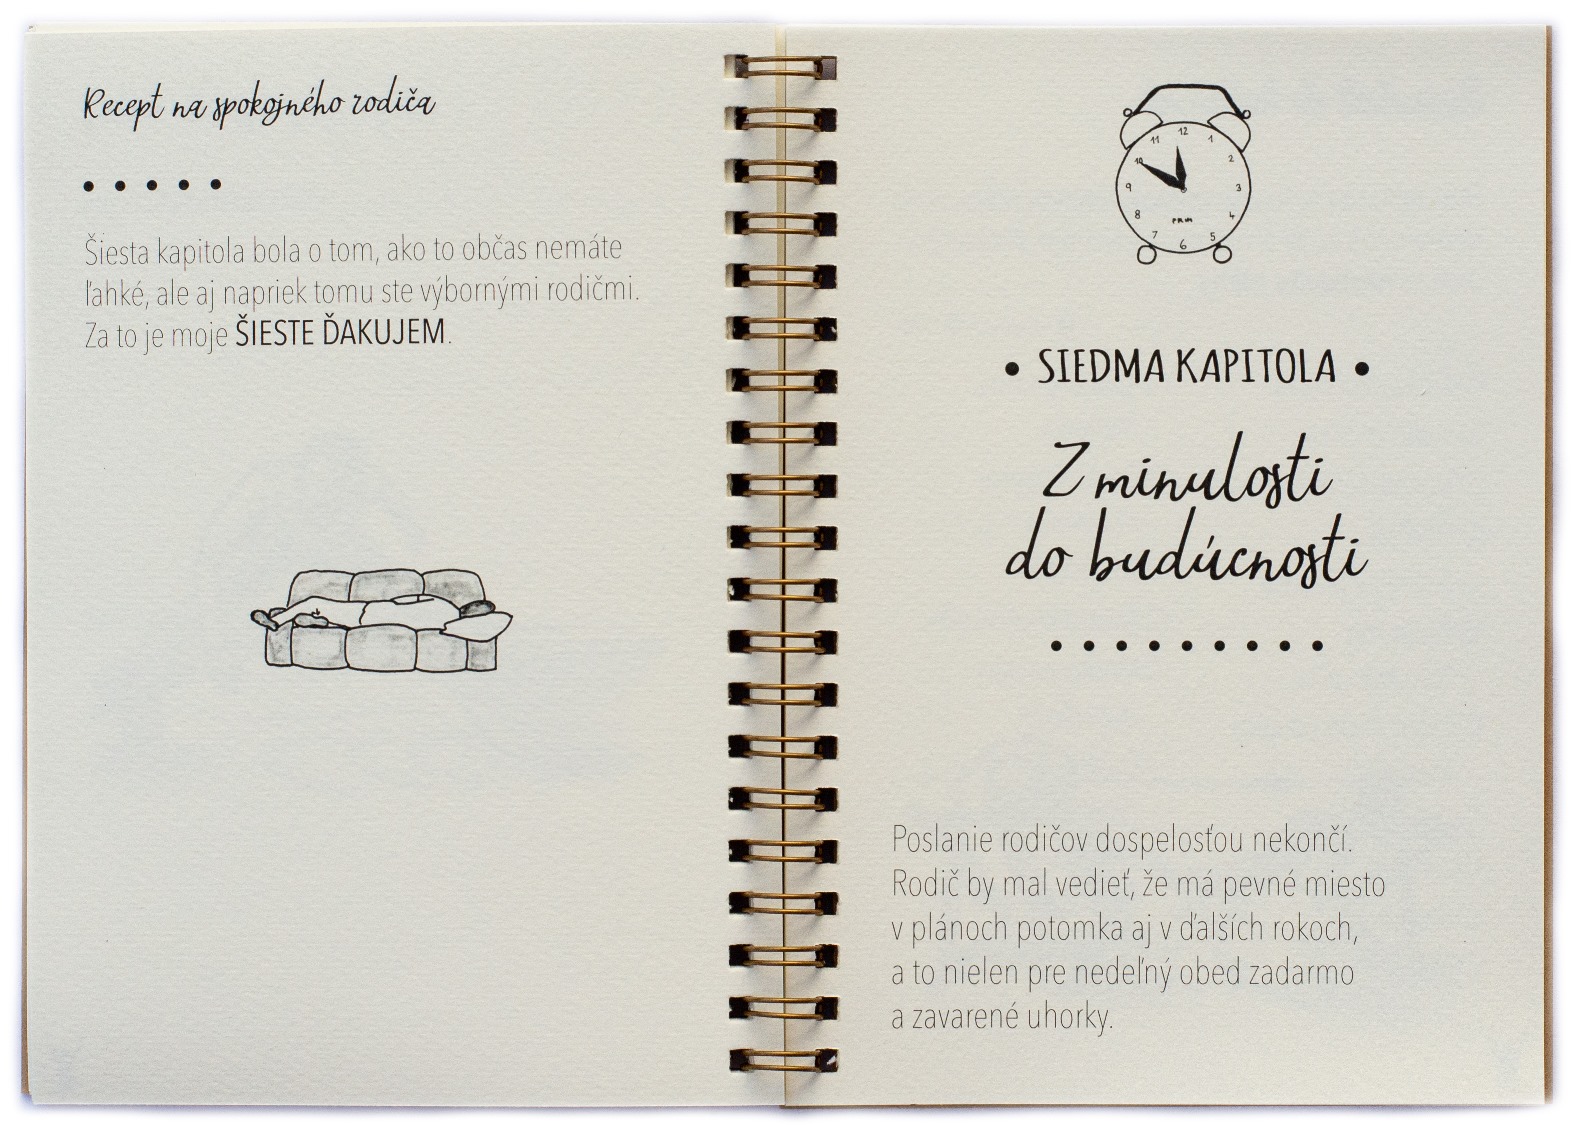 Recept na spokojného rodiča
Šiesta kapitola bola o tom, ako to občas nemáte
ľahké, ale aj napriek tomu ste výbornými rodičmi.
Za to je moje ŠIESTE ĎAKUJEM.
12
1
2
3
4
5
6
7
8
9
10
11
PRIM
• SIEDMA KAPITOLA •
Z minulosti
do budúcnosti
Poslanie rodičov dospelosťou nekončí.
Rodič by mal vedieť, že má pevné miesto
v plánoch potomka aj v ďalších rokoch,
a to nielen pre nedeľný obed zadarmo
a zavarené uhorky.